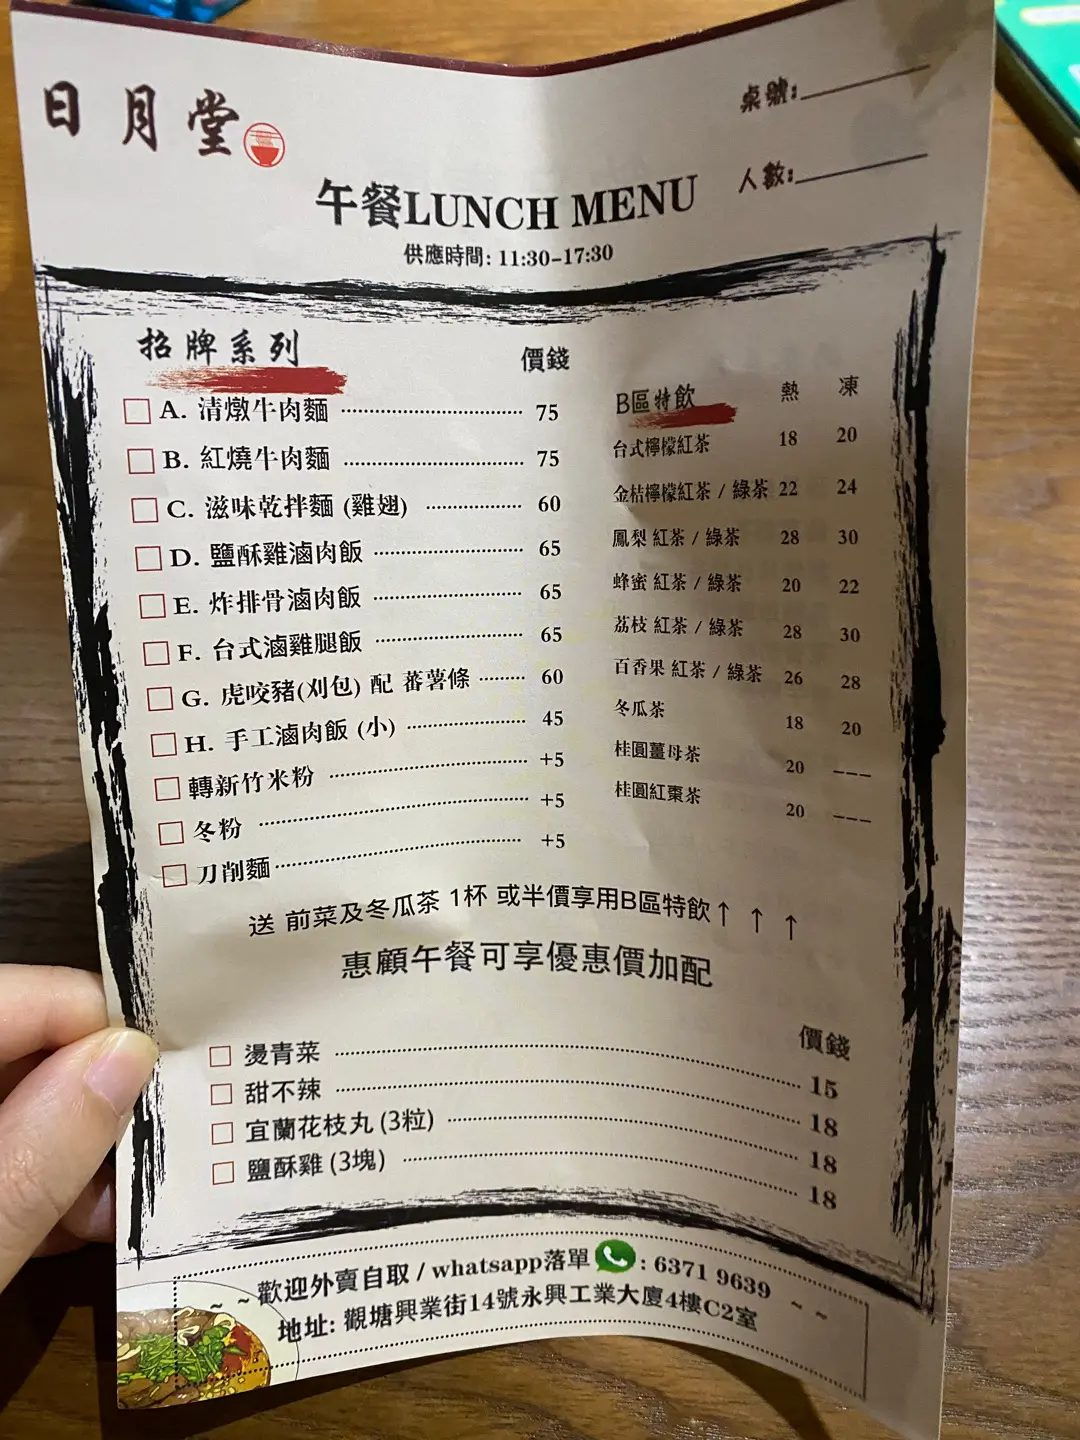 日月堂
桌號:
人數:
午餐LUNCH MENU
供應時間: 11:30-17:30
招牌系列 價錢
A. 清燉牛肉麵 75
B. 紅燒牛肉麵 75
C. 滋味乾拌麵 (雞翅) 60
D. 鹽酥雞滷肉飯 65
E. 炸排骨滷肉飯 65
F. 台式滷雞腿飯 65
G. 虎咬豬(刈包) 配 蕃薯條 60
H. 手工滷肉飯 (小) 45
轉新竹米粉 +5
冬粉 +5
刀削麵 +5
B區特飲 熱 凍
台式檸檬紅茶 18 20
金桔檸檬紅茶 / 綠茶 22 24
鳳梨 紅茶 / 綠茶 28 30
蜂蜜 紅茶 / 綠茶 20 22
荔枝 紅茶 / 綠茶 28 30
百香果 紅茶 / 綠茶 26 28
冬瓜茶 18 20
桂圓薑母茶 20 ---
桂圓紅棗茶 20 ---
送 前菜及冬瓜茶 1杯 或半價享用B區特飲↑ ↑ ↑
惠顧午餐可享優惠價加配
價錢
燙青菜 15
甜不辣 18
宜蘭花枝丸 (3粒) 18
鹽酥雞 (3塊) 18
~ ~ 歡迎外賣自取 / whatsapp落單 : 6371 9639 ~ ~
地址: 觀塘興業街14號永興工業大廈4樓C2室